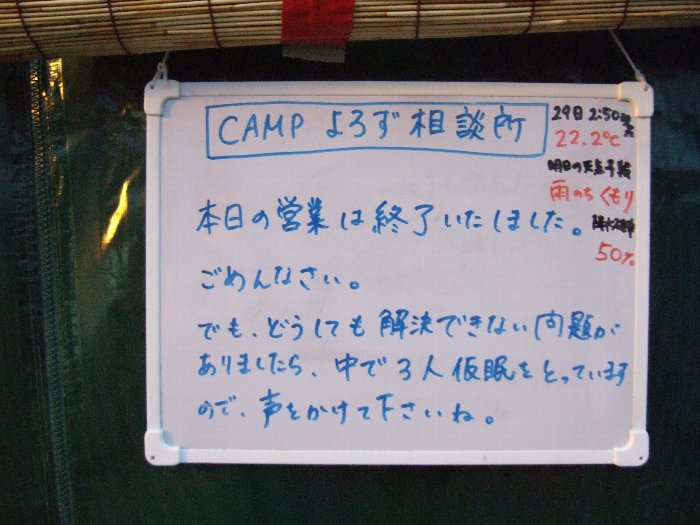 CAMP よろず相談所
本日の営業は終了いたしました。
ごめんなさい。
でも、どうしても解決できない問題が
ありましたら、中で3人仮眠をとっています
ので、声をかけて下さいね。
29日 2:50
22.2℃
明日の天気予報
雨のちくもり
降水確率
50%